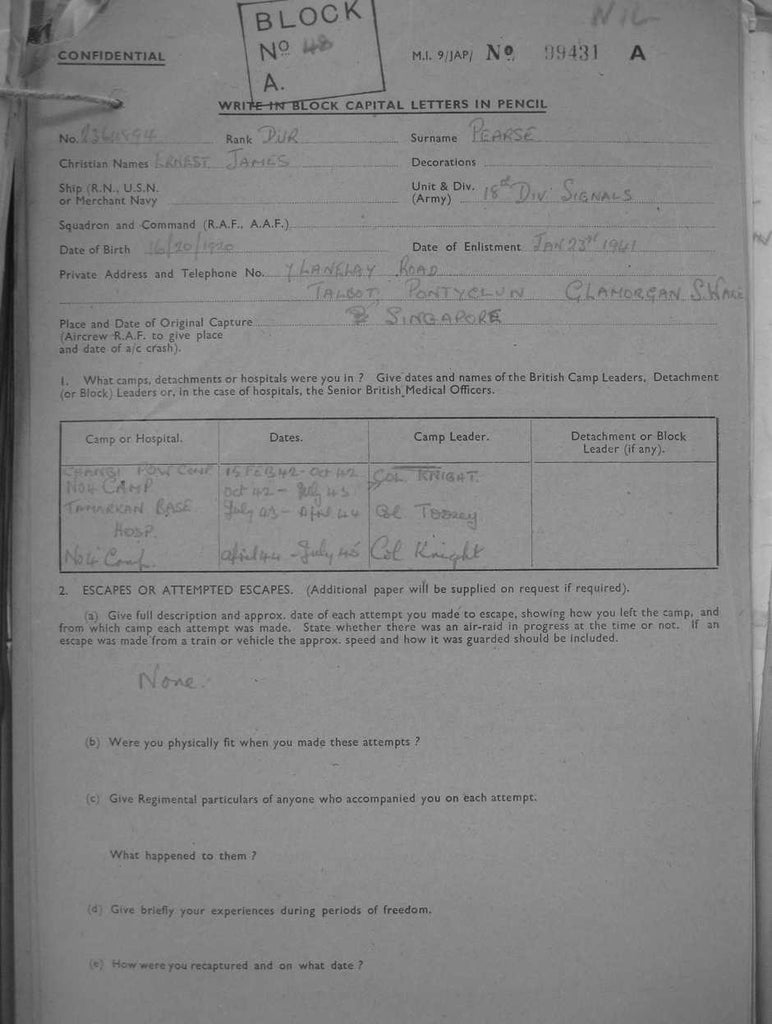 NIL
BLOCK
Nº 48
A.
CONFIDENTIAL
M.I. 9/JAP/ Nº 99431 A
WRITE IN BLOCK CAPITAL LETTERS IN PENCIL
No. Rank DVR Surname PEARSE
Christian Names ERNEST JAMES Decorations
Ship (R.N., U.S.N. or Merchant Navy Unit & Div. (Army) 18th DIV. SIGNALS
Squadron and Command (R.A.F., A.A.F.)
Date of Birth 16/20/1920 Date of Enlistment JAN 23rd 1941
Private Address and Telephone No. ROAD
TALBOT, PONTYCLUN GLAMORGAN S. WALE
Place and Date of Original Capture SINGAPORE
(Aircrew R.A.F. to give place
and date of a/c crash).
1. What camps, detachments or hospitals were you in ? Give dates and names of the British Camp Leaders, Detachment
(or Block) Leaders or, in the case of hospitals, the Senior British Medical Officers.
Camp or Hospital. Dates. Camp Leader. Detachment or Block Leader (if any).
CHANGI POW CAMP 15 FEB 42 - OCT 42
No 4 CAMP Oct 42 - July 43 COL KNIGHT.
TAMARKAN BASE HOSP. July 43 - April 44 Col Toosey
No 4 Camp. April 44 - July 45 Col Knight
2. ESCAPES OR ATTEMPTED ESCAPES. (Additional paper will be supplied on request if required).
(a) Give full description and approx. date of each attempt you made to escape, showing how you left the camp, and
from which camp each attempt was made. State whether there was an air-raid in progress at the time or not. If an
escape was made from a train or vehicle the approx. speed and how it was guarded should be included.
None.
(b) Were you physically fit when you made these attempts ?
(c) Give Regimental particulars of anyone who accompanied you on each attempt.
What happened to them ?
(d) Give briefly your experiences during periods of freedom.
(e) How were you recaptured and on what date ?